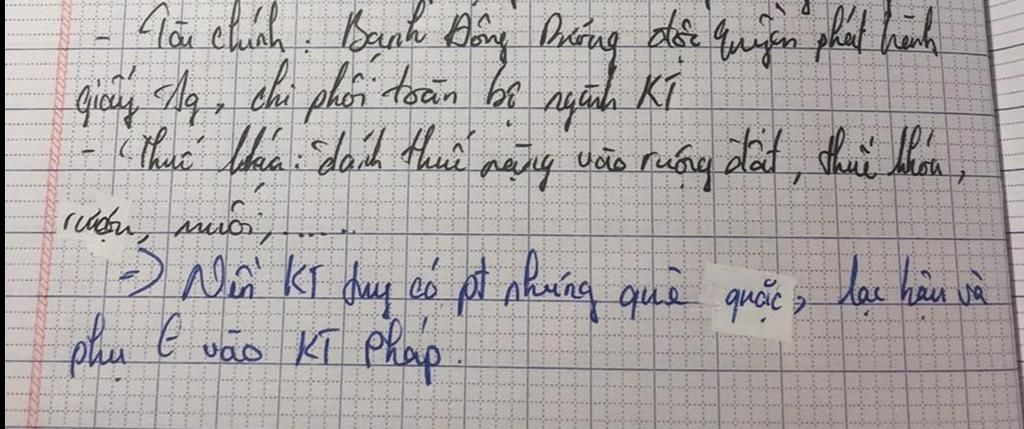 - Tài chính: Banh Đông Dương độc quyền phát hành
giấy, chi phối toàn bộ ngành KT
- Thuế khóa: đánh thuế nặng vào ruộng đất, thuế thân,
rượu, muối,......
=> Nền KT tuy có pt nhưng què quặc, lạc hậu và
phụ € vào KT Pháp.